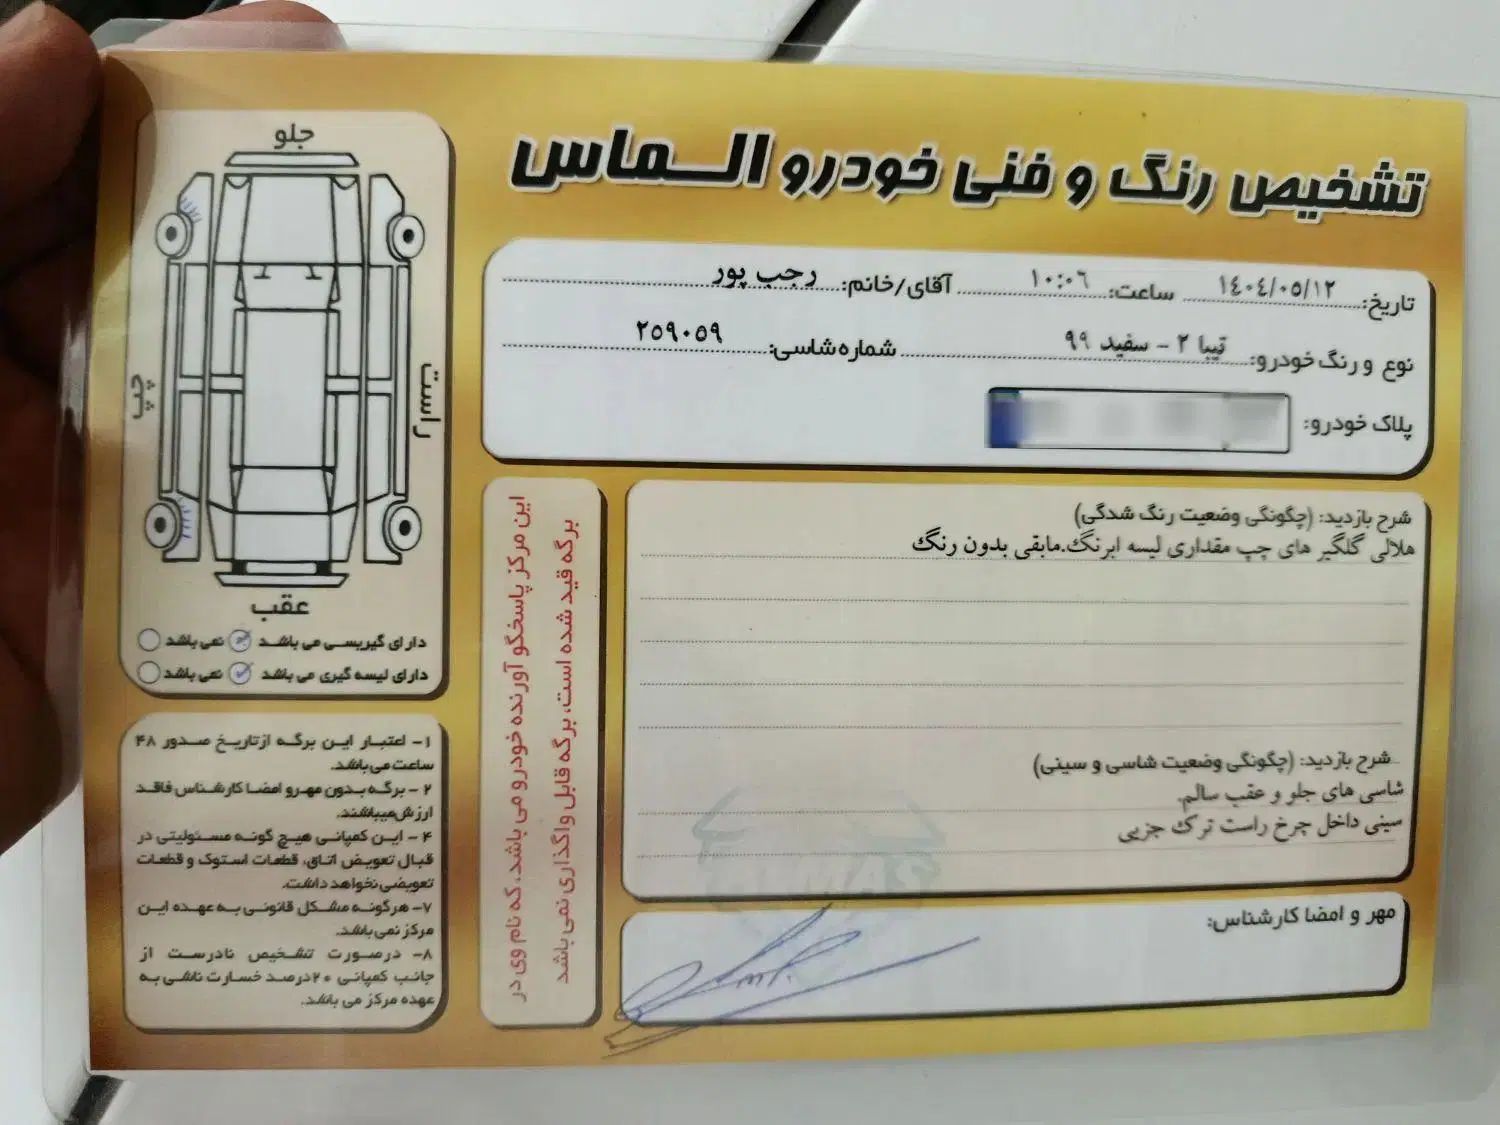 تشخیص رنگ و فنی خودرو الـــماس
تاریخ: ۱٤۰٤/۰٥/۱۲ ساعت: ۱۰:۰٦ آقای/خانم: رجب پور
نوع و رنگ خودرو: تیبا ۲ - سفید ۹۹ شماره شاسی: ۲٥۹۰٥۹
پلاک خودرو:
شرح بازدید: (چگونگی وضعیت رنگ شدگی)
هلالی گلگیر های چپ مقداری لیسه ابرنگ.مابقی بدون رنگ
شرح بازدید: (چگونگی وضعیت شاسی و سینی)
شاسی های جلو و عقب سالم.
سینی داخل چرخ راست ترک جزیی
مهر و امضا کارشناس:
این مرکز پاسخگو آورنده خودرو می باشد، که نام وی در
برگه قید شده است، برگه قابل واگذاری نمی باشد
جلو
چپ
راست
عقب
دارای گیریسی می باشد نمی باشد
دارای لیسه گیری می باشد نمی باشد
۱- اعتبار این برگه از تاریخ صدور ۴۸
ساعت می باشد.
۲ - برگه بدون مهر و امضا کارشناس فاقد
ارزش میباشند.
۴ - این کمپانی هیچ گونه مسئولیتی در
قبال تعویض اتاق، قطعات استوک و قطعات
تعویضی نخواهد داشت.
۷- هرگونه مشکل قانونی به عهده این
مرکز نمی باشد.
۸- درصورت تشخیص نادرست از
جانب کمپانی ۲۰درصد خسارت ناشی به
عهده مرکز می باشد.
ALMAS